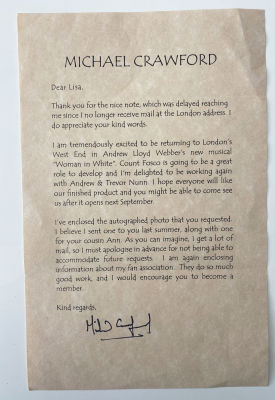 MICHAEL CRAWFORD
Dear Lisa,
Thank you for the nice note, which was delayed reaching
me since I no longer receive mail at the London address. I
do appreciate your kind words.
I am tremendously excited to be returning to London's
West End in Andrew Lloyd Webber's new musical
"Woman in White". Count Fosco is going to be a great
role to develop and I'm delighted to be working again
with Andrew & Trevor Nunn. I hope everyone will like
our finished product and you might be able to come see
us after it opens next September.
I've enclosed the autographed photo that you requested.
I believe I sent one to you last summer, along with one
for your cousin Ann. As you can imagine, I get a lot of
mail, so I must apologise in advance for not being able to
accommodate future requests. I am again enclosing
information about my fan association. They do so much
good work, and I would encourage you to become a
member.
Kind regards,